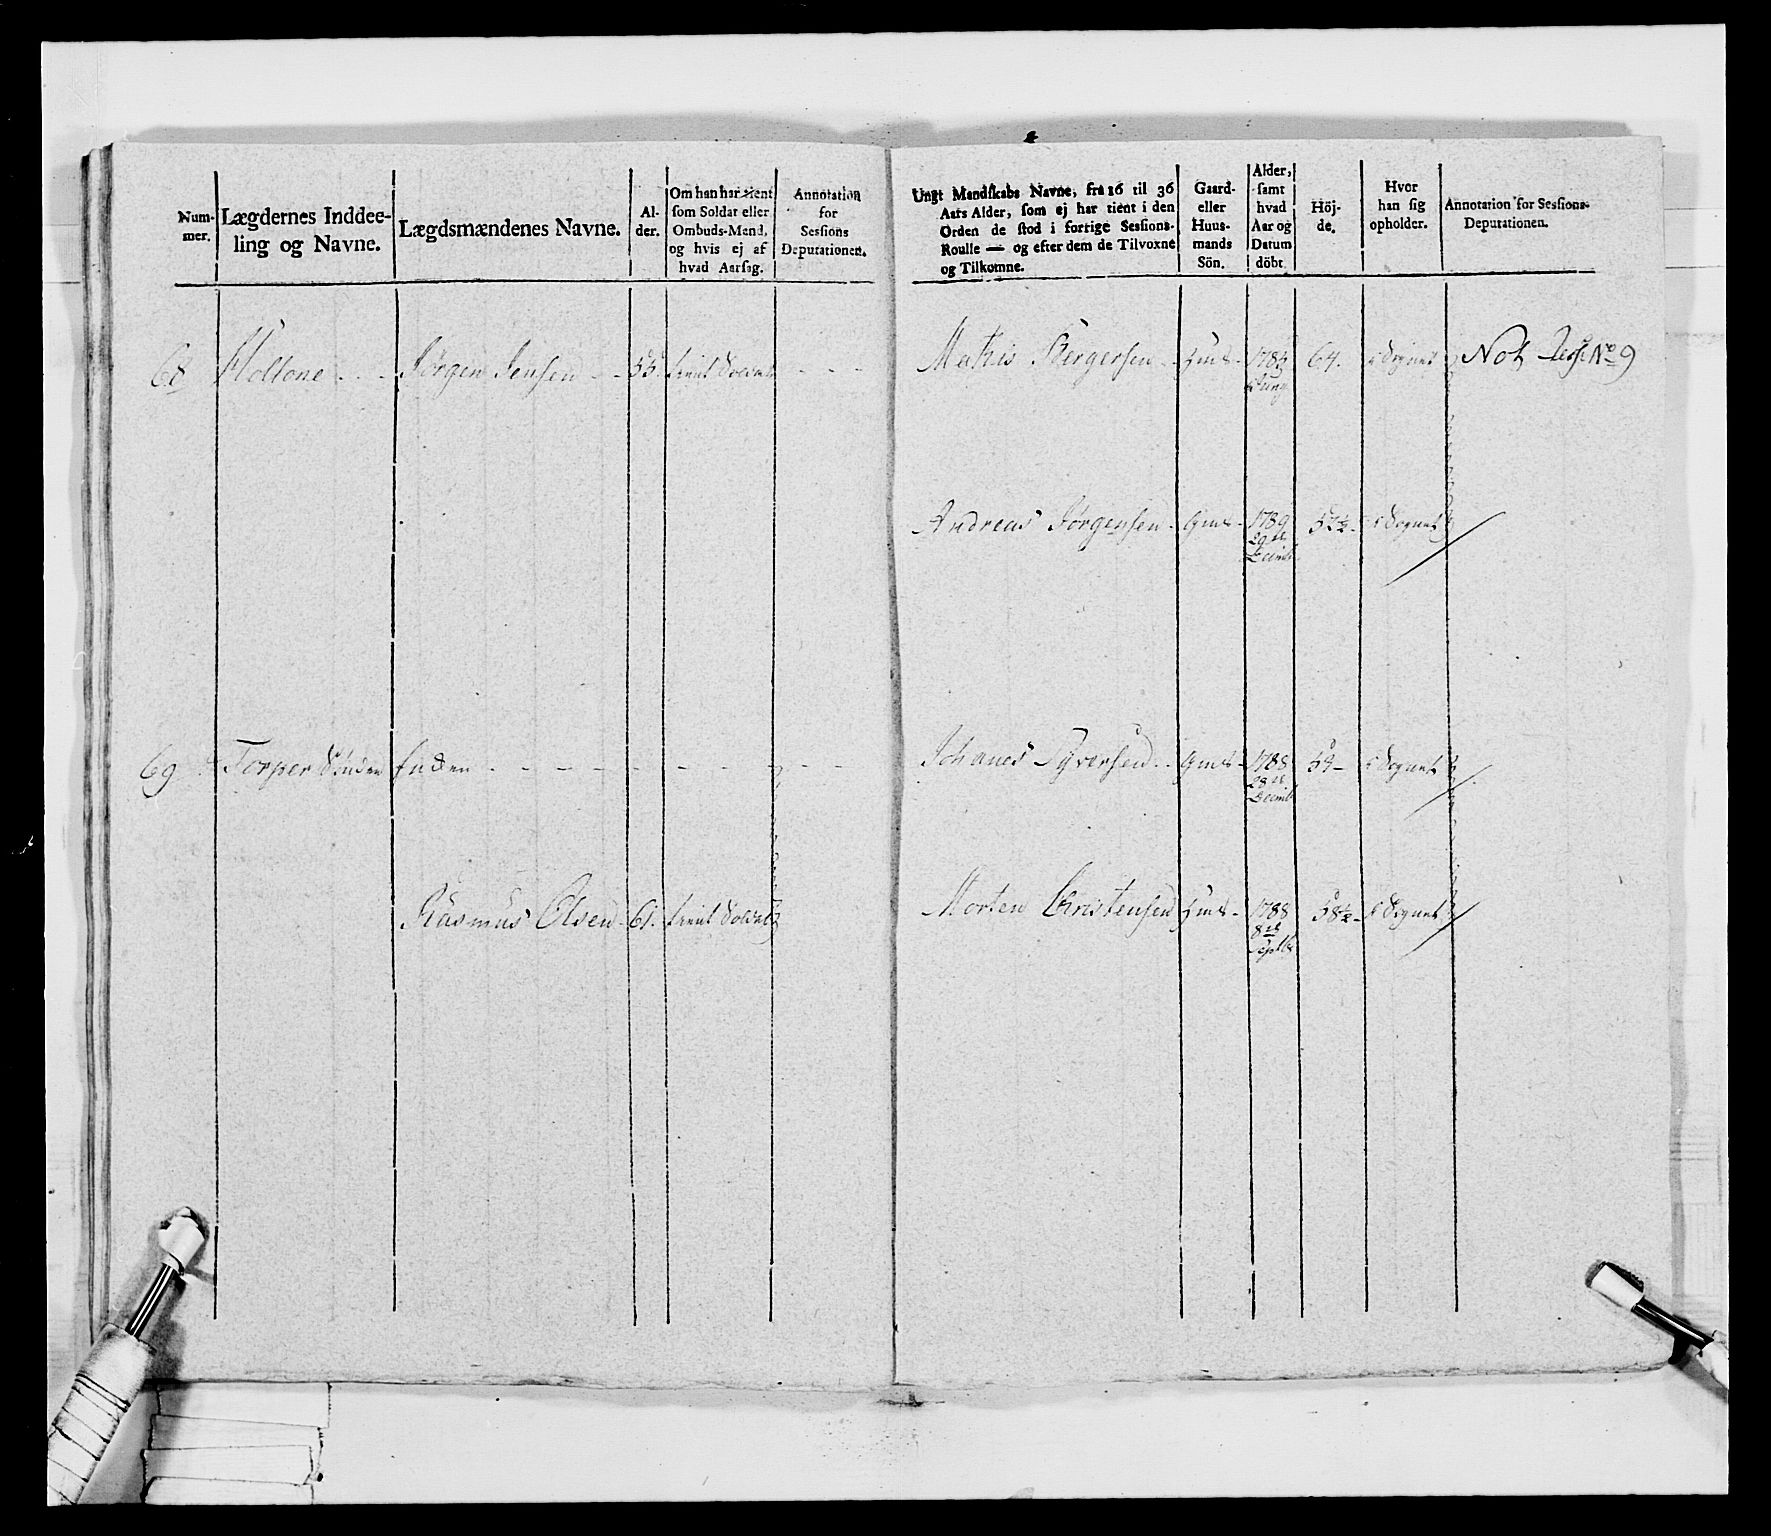 Num-
mer.
Lægdernes Inddee-
ling og Navne.
Lægdsmændenes Navne.
Al-
der.
Om han har tient
som Soldat eller
Ombuds-Mend,
og hvis ej af
hvad Aarsag.
Annotation
for
Sessions
Deputationen.
68 Holtone - - - Jörgen Jensen - - 55. tient Soldat - - -
69 Torper Sönden fieden - - - - - - - - -
Rasmus Olsen - 61. tient Soldat
Ungt Mandskabs Navne, fra 16 til 36
Aars Alder, som ej har tient i den
Orden de stod i forrige Sessions-
Roulle — og efter dem de Tilvoxne
og Tilkomne.
Gaard-
eller
Huus-
mands
Sön.
Alder,
samt
hvad
Aar og
Datum
döbt
Höj-
de.
Hvor
han sig
opholder.
Annotation for Sessions-
Deputationen.
Mathis Bergersen - 1784 64. i Sognet Not No 9
Andreas Jörgensen - Gmds - 1789 52½ - i Sognet
29de
Decemb
Johanes Syversen - - Gmds - 1788 54 - i Sognet
28de
Decemb
Morten Christensen Hmds - 1788 58½ - i Sognet
8de
Septbr